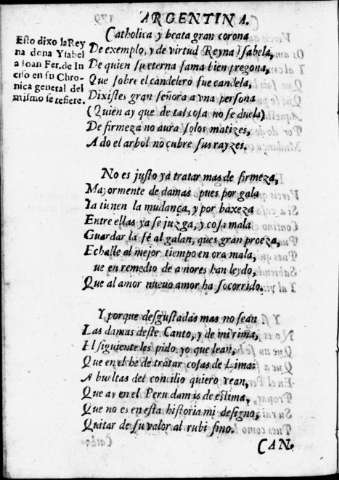 ARGENTINA.
Esto dixo la Rey
na doña Ysabel
a Ioan Fer. de In
ciso en su Chro-
nica general del
mismo se refiere.
Catholica y beata gran corona
De exemplo, y de virtud Reyna Isabela,
De quien su eterna fama bien pregona,
Que sobre el candelero fue candela,
Dixistes gran señora a vna persona
(Quien ay que de tal cosa no se duela)
De firmeza no aura solos matizes,
A do el arbol no cubre sus rayzes.
No es justo ya tratar mas de firmeza,
Mayormente de damas pues por gala
Ya tienen la mudança, y por baxeza
Entre ellas ya se juzga, y cosa mala
Guardar la fè al galan, ques gran proeza,
Echalle al mejor tiempo en ora mala,
ue en remedio de amores han leydo,
Que al amor nueuo amor ha socorrido.
Y porque desgustadas mas no sean
Las damas deste Canto, y de mi rima,
El siguiente les pido yo que lean,
Que en el he de tratar cosas de Lima:
A bueltas del concilio quiero vean,
Que ay en el Peru damas de estima,
Que no es en esta historia mi designo,
Quitar de su valor al rubi fino.
CAN-